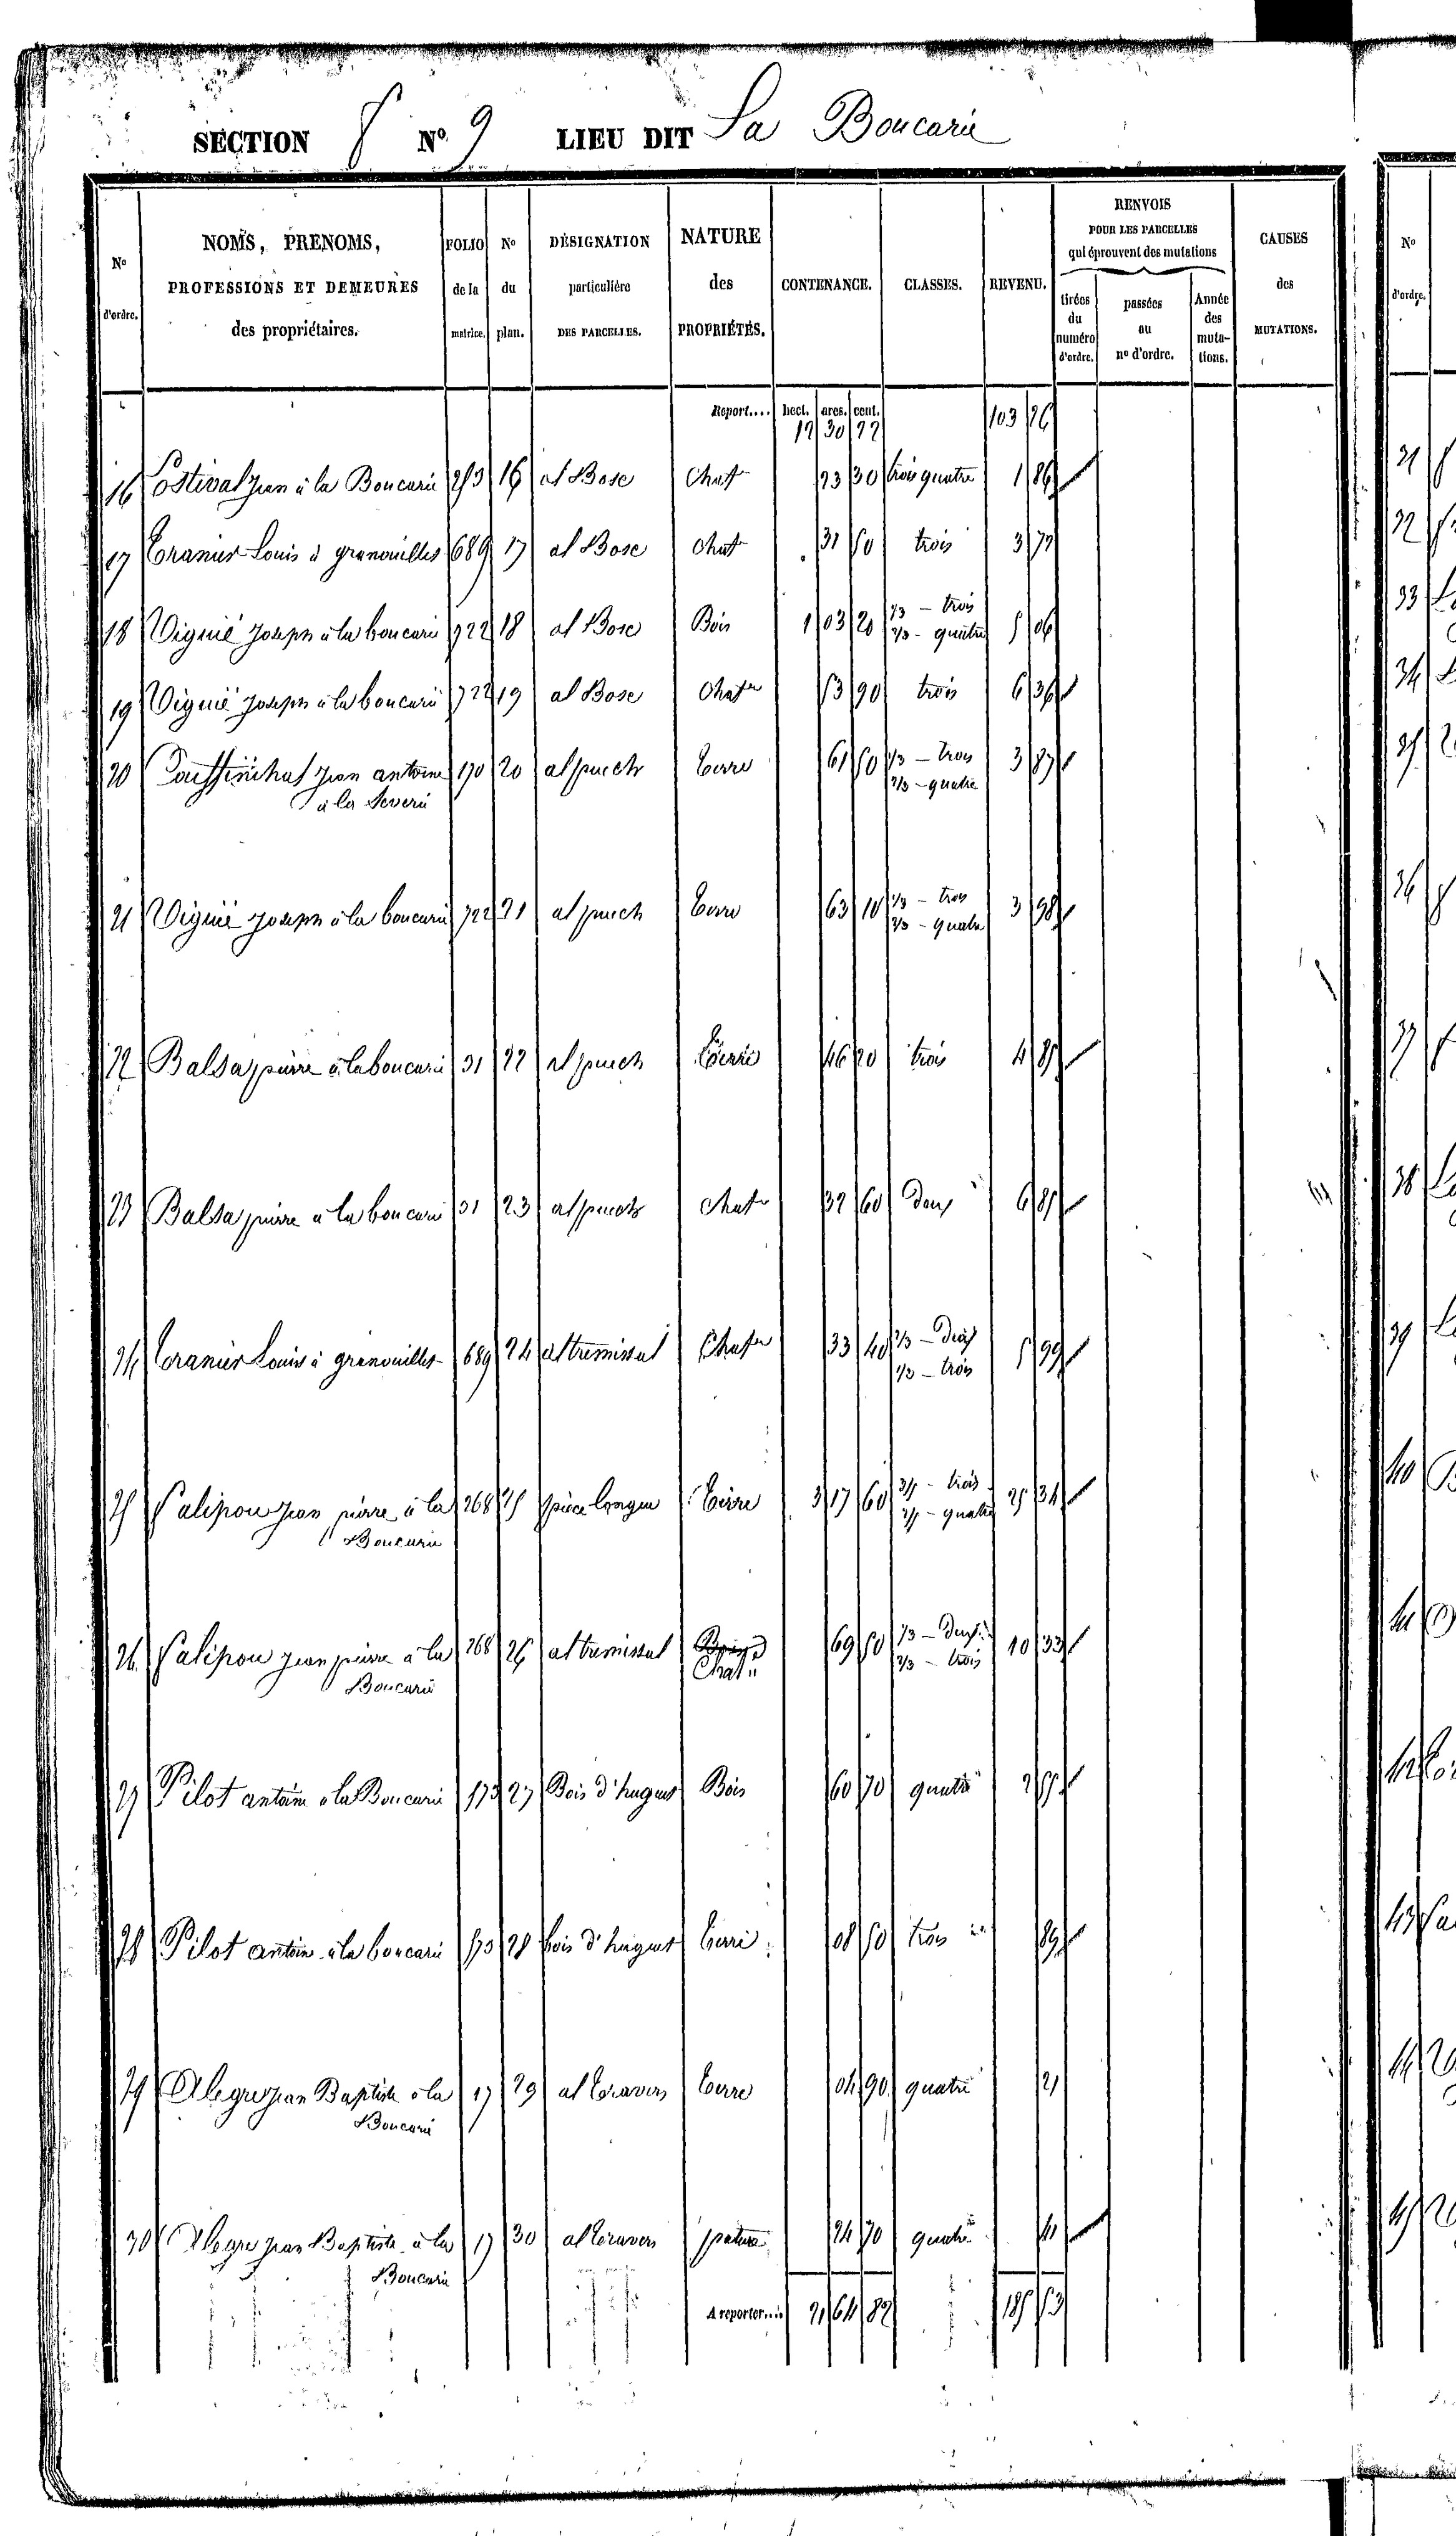 SECTION N° 9 LIEU DIT La Boucarie
N° d'ordre. NOMS, PRENOMS, PROFESSIONS ET DEMEURES des propriétaires. FOLIO de la matrice. N° du plan. DÉSIGNATION particulière DES PARCELLES. NATURE des PROPRIÉTÉS. CONTENANCE. CLASSES. REVENU. RENVOIS POUR LES PARCELLES qui éprouvent des mutations tirées du numéro d'ordre. passées au n° d'ordre. Année des mutations. CAUSES des MUTATIONS. N° d'ordre.
Report.... hect. ares. cent. 103 26
12 30 22
16 Jean à la Boucarie 253 16 al Bosc Chat 23 30 trois quatre 1 86
17 Louis à grenouilles 689 17 al Bosc chat 31 50 trois 3 72
18 Viguié Joseph à la boucarie 722 18 al Bosc Bois 1 03 20 1/3 - trois 5 06
2/3 - quatre
19 Viguié Joseph à la boucarie 722 19 al Bosc Chat 53 90 trois 6 36
20 Jean antoine 170 20 al puech terre 61 50 1/3 - trois 3 87
à la Severie 2/3 - quatre
21 Viguié Joseph à la boucarie 722 21 al puech terre 63 10 1/3 - trois 3 98
2/3 - quatre
22 Balsa pierre à la boucarie 31 22 al puech terre 46 20 trois 4 85
23 Balsa pierre a la boucarie 31 23 al puech chat 32 60 deux 6 85
24 Louis à grenouilles 689 24 al tremissal Chat 33 40 2/3 - deux 5 99
1/3 - trois
25 Jean pierre à la 268 25 pièce longue terre 3 17 60 3/5 - trois 25 34
Boucarie 2/5 - quatre
26 Jean pierre à la 268 26 al tremissal 69 50 1/3 - deux 10 33
Boucarie Chat 2/3 - trois
27 Pilot antoine à la Boucarie 573 27 Bois d'hugues Bois 60 70 quatre 2 55
28 Pilot antoine à la boucarie 573 28 bois d'hugues terre 08 50 trois 89
29 Alegre Jean Baptiste à la 17 29 al travers terre 04 90 quatre 21
Boucarie
30 Alegre Jean Baptiste à la 17 30 al travers pature 24 70 quatre 41
Boucarie
A reporter.... 21 64 82 185 53
31
32
33
34
35
36
37
38
39
40
41
42
43
44
45